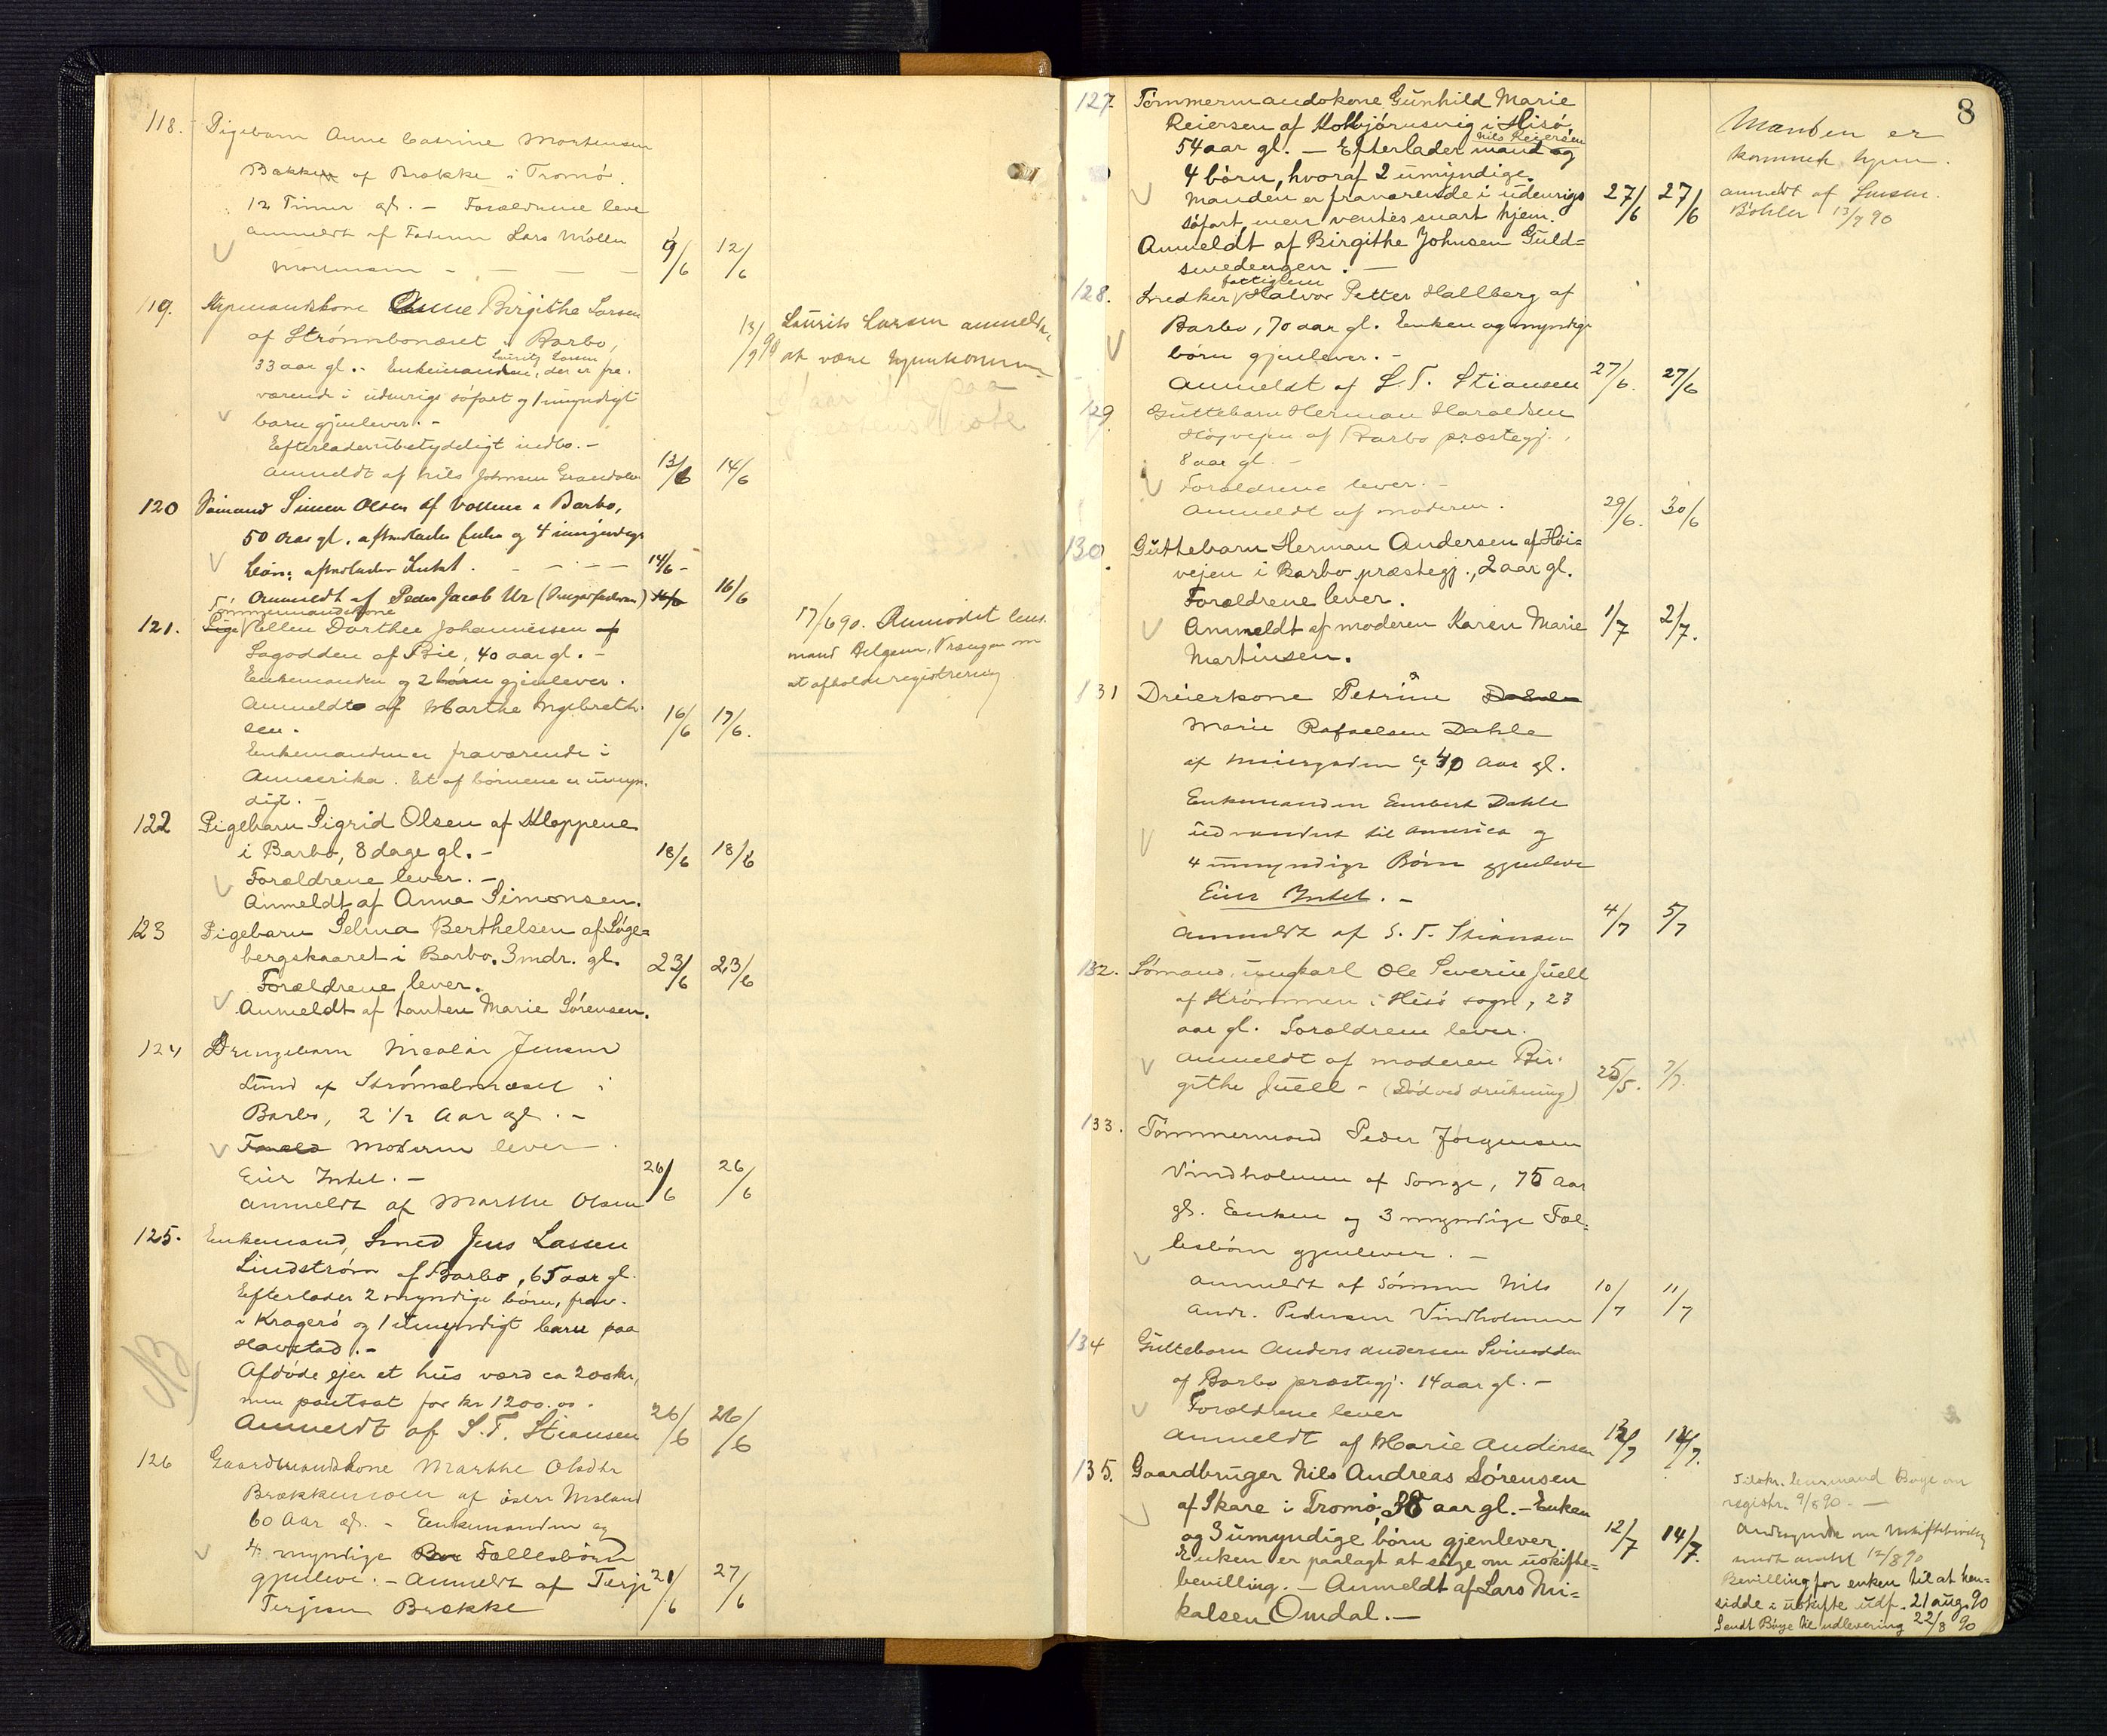 118. Pigebarn Anne Catrine Mortensen
Bakken af Brække i Tromø.
12 Timer gl. – Forældrene leve
Anmeldt af Faderen Lars Møller
Mortensen - — — — 9/6 12/6
119. Styrmandskone Anne Birgithe Larsen
af Strømsbonæset i Barbo,
Lauritz Larsen
33 aar gl. - Enkemanden, der er fra-
værende i udenrigs søfart og 1 umyndigt
barn gjenlever. -
Efterlader ubetydeligt indbo. -
Anmeldt af Nils Johnsen 13/6 14/6
13/9 90 Laurits Larsen anmeldte
at være hjemkommen
120 Sømand Simen Olsen af Vollene i Barbo,
50 Aar gl. efterlader Enke og 4 umyndige
børn; efterlader Intet. - - - - 14/6 -
Anmeldt af Peder Jacob Ur 14/6 16/6
Tømmermandskone
121. Pige Ellen Dorthee Johannessen af
Sagodden af Bie, 40 aar gl. -
Enkemanden og 2 børn gjenlever.
Anmeldt af Marthe Ingebreth-
sen. 16/6 17/6.
Enkemanden er fraværende i
Ammerika. Et af børnene er umyn-
digt. -
17/6 90. Anmodet lens-
mand om
at afholde registrering
122 Pigebarn Sigrid Olsen af Kloppene
i Barbo, 8 dage gl. - 18/6 18/6
Forældrene lever. -
Anmeldt af Anna Simonsen.
123 Pigebarn Selma Berthelsen af Løge=
bergskaaret i Barbo. 3 mdr. gl. 23/6 23/6
Forældrene lever.
Anmeldt af tanten Marie Sørensen.
124 Drengebarn Nicolai Jensen
Lund af Strømsbonæset i
Barbo, 2 1/2 Aar gl. -
Foræld Moderen lever
Eier Intet. - 26/6 26/6
Anmeldt af Marthe Olsen
125. Enkemand, Smed Jens Lassen
Lindstrøm af Barbo, 65 aar gl.
Efterlader 2 myndige børn, frav.
i Kragerø og 1 umyndigt barn paa
Havstad. -
NB
Afdøde ejer et hus værd ca 200 kr,
men pantsat for kr 1200.00.
Anmeldt af S. T. Stiansen 26/6 26/6
126 Gaardmandskone Marthe Olsdtr
Brækkemoen af østre Moland
60 Aar gl. - Enkemanden og
4 myndige Bør Fællesbørn
gjenleve. - Anmeldt af Terje 21/6 27/6
Terjesen Brække
8
127. Tømmermandskone Gunhild Marie
Reiersen af Kolbjørnsvig i Hisø
Nils Reiersen
54 aar gl. - Efterlader mand og
4 børn, hvoraf 2 umyndige.
Manden er fraværende i udenrigs 27/6 27/6
søfart, men ventes snart hjem.
Anmeldt af Birgithe Johnsen Guld=
smedengen. —
Manden er
kommet hjem.
anmeldt af
Bøhler 13/7 90
fattiglem
128. Snedker Halvor Petter Hallberg af
Barbo, 70 aar gl. Enken og myndige
børn gjenlever. -
Anmeldt af S. T. Stiansen 27/6. 27/6
129 Guttebarn Herman Haraldsen
Høgvejen af Barbo præstegj.,
8 aar gl. -
Forældrene lever. -
Anmeldt af moderen. 29/6. 30/6
130. Guttebarn Herman Andersen af Høi=
vejen i Barbo præstegj., 2 aar gl.
Forældrene lever.
Anmeldt af moderen Karen Marie 1/7 2/7.
Martinsen.
131 Dreierkone Petrine Dahle
Marie Rafaelsen Dahle
af ca 40 Aar gl.
Enkemanden Dahle
udvandret til America og
4 umyndige Børn gjenleve
Eier Intet. -
Anmeldt af S. T. Stiansen 4/7 5/7
132. Sømand, ungkarl Ole Severin Juell
af Strømmen i Hisø sogn, 23
aar gl. Forældrene lever.
Anmeldt af moderen Bir-
githe Juell - (Død ved drukning) 25/5. 7/7.
133. Tømmermand Peder Jørgensen
Vindholmen af Songe, 75 Aar
gl. Enken og 3 myndige Fæl-
lesbørn gjenlever. -
Anmeldt af Sønnen Nils 10/7 11/7
Andr. Pedersen Vindholmen
134 Guttebarn Anders Andersen Svinodden
af Barbo præstegj. 14 aar gl. -
Forældrene lever
Anmeldt af Marie Andersen 12/7 14/7.
135. Gaardbruger Nils Andreas Sørensen
af Skare i Tromø, 38 aar gl. - Enken
og 3 umyndige børn gjenlever. 12/7 14/7.
Enken er paalagt at søge om uskifte=
bevilling. - Anmeldt af Lars Mi=
kalsen Omdal. —
Tilskr. lensmand Bøye om
registr. 9/8 90. —
Andragende om Uskiftebevilling
sendt amtet 12/8 90
Bevilling for enken til at hen=
sidde i uskifte udf. 21 aug. 90
Sendt Bøye til udlevering 22/8 90